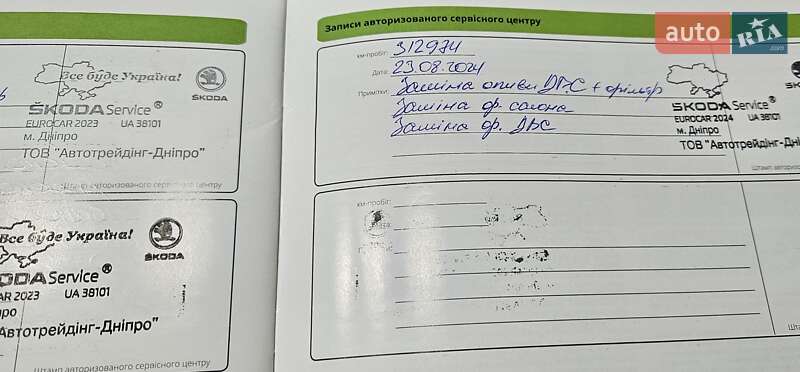 Все буде Україна!
ŠKODA
ŠKODA Service®
EUROCAR 2023 UA 38101
м. Дніпро
ТОВ "Автотрейдінг-Дніпро"
Штамп авторизованого сервісного центру
Все буде Україна!
ŠKODA
ODA Service®
AR 2023 UA 38101
про
Автотрейдінг-Дніпро"
Штамп авторизованого сервісного центру
Записи авторизованого сервісного центру
км-пробіг: 312974
Дата: 23.08.2024
Примітки: Заміна оливи ДВС + фільтр
Заміна ф. салона
Заміна ф. ДВС
Все буде
ŠKODA Service
EUROCAR 2024 UA 3810
м. Дніпро
ТОВ "Автотрейдінг-Дніпр
Штамп авторизо
км-пробіг:
Дата:
Штам
auto RIA .com